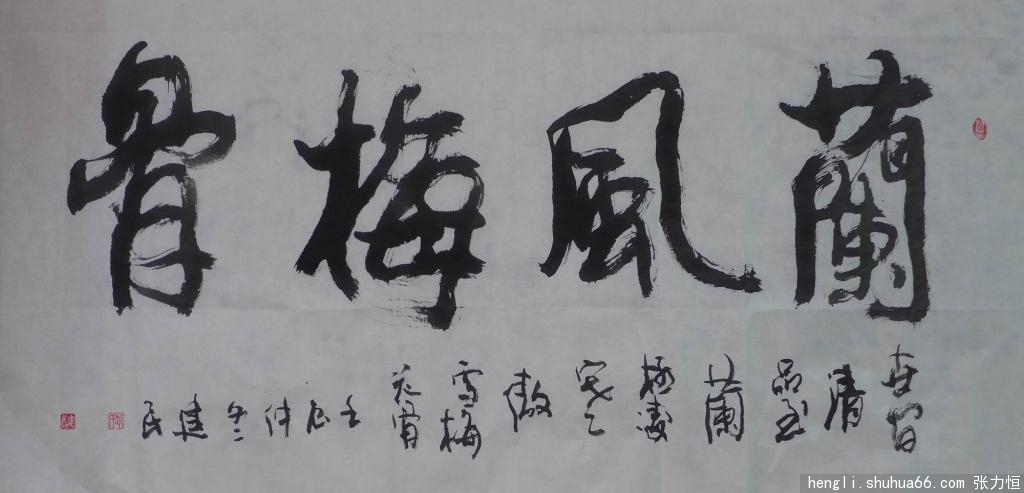 蘭風梅骨
世間清品至蘭極凌寒之傲雪梅花骨
壬辰仲冬建民
hengli.shuhua66.com 张力恒